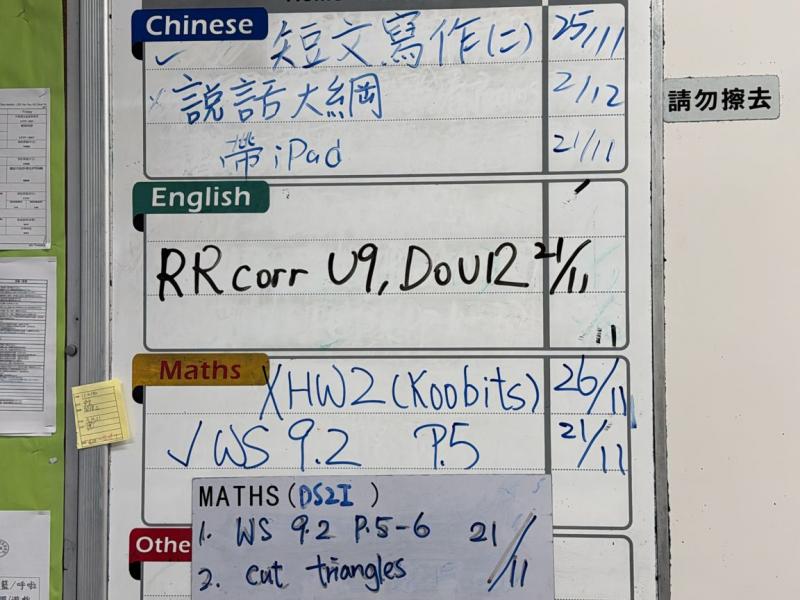 Chinese
✓ 短文寫作(二) 25/11
x 說話大綱 2/12
帶iPad 21/11
請勿擦去
English
RR corr U9, Do U12 21/11
Maths
X HW2 (Koobits) 26/11
✓ WS 9.2 P.5 21/11
MATHS (DS2I )
1. WS 9.2 P.5-6 21/11
2. cut triangles
Othe